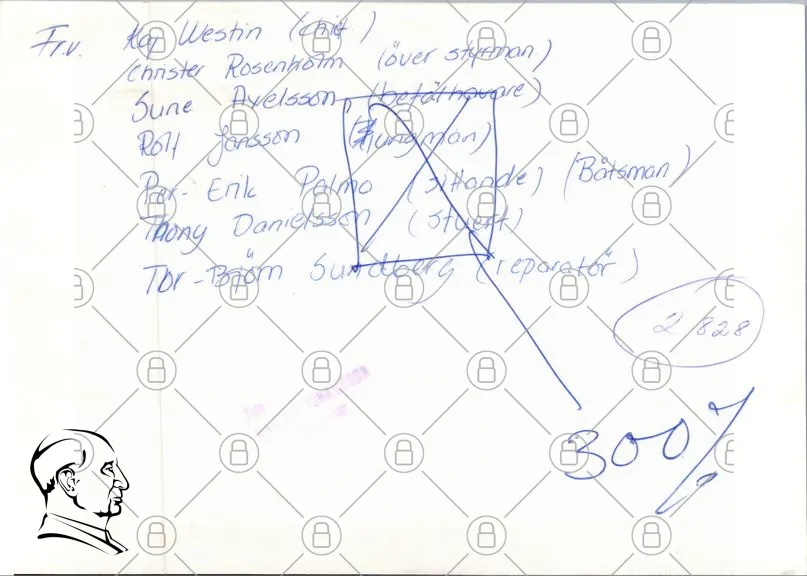 Fr.v. Kaj Westin (chif)
Christer Rosenholm (över styrman)
Sune Axelsson (befälhavare)
Rolf Jansson (Jungman)
Per-Erik Palmo (sittande) (Båtsman)
Thony Danielsson (Stuert)
Tor-Björn Sundberg (reparatör)
2 828
300%